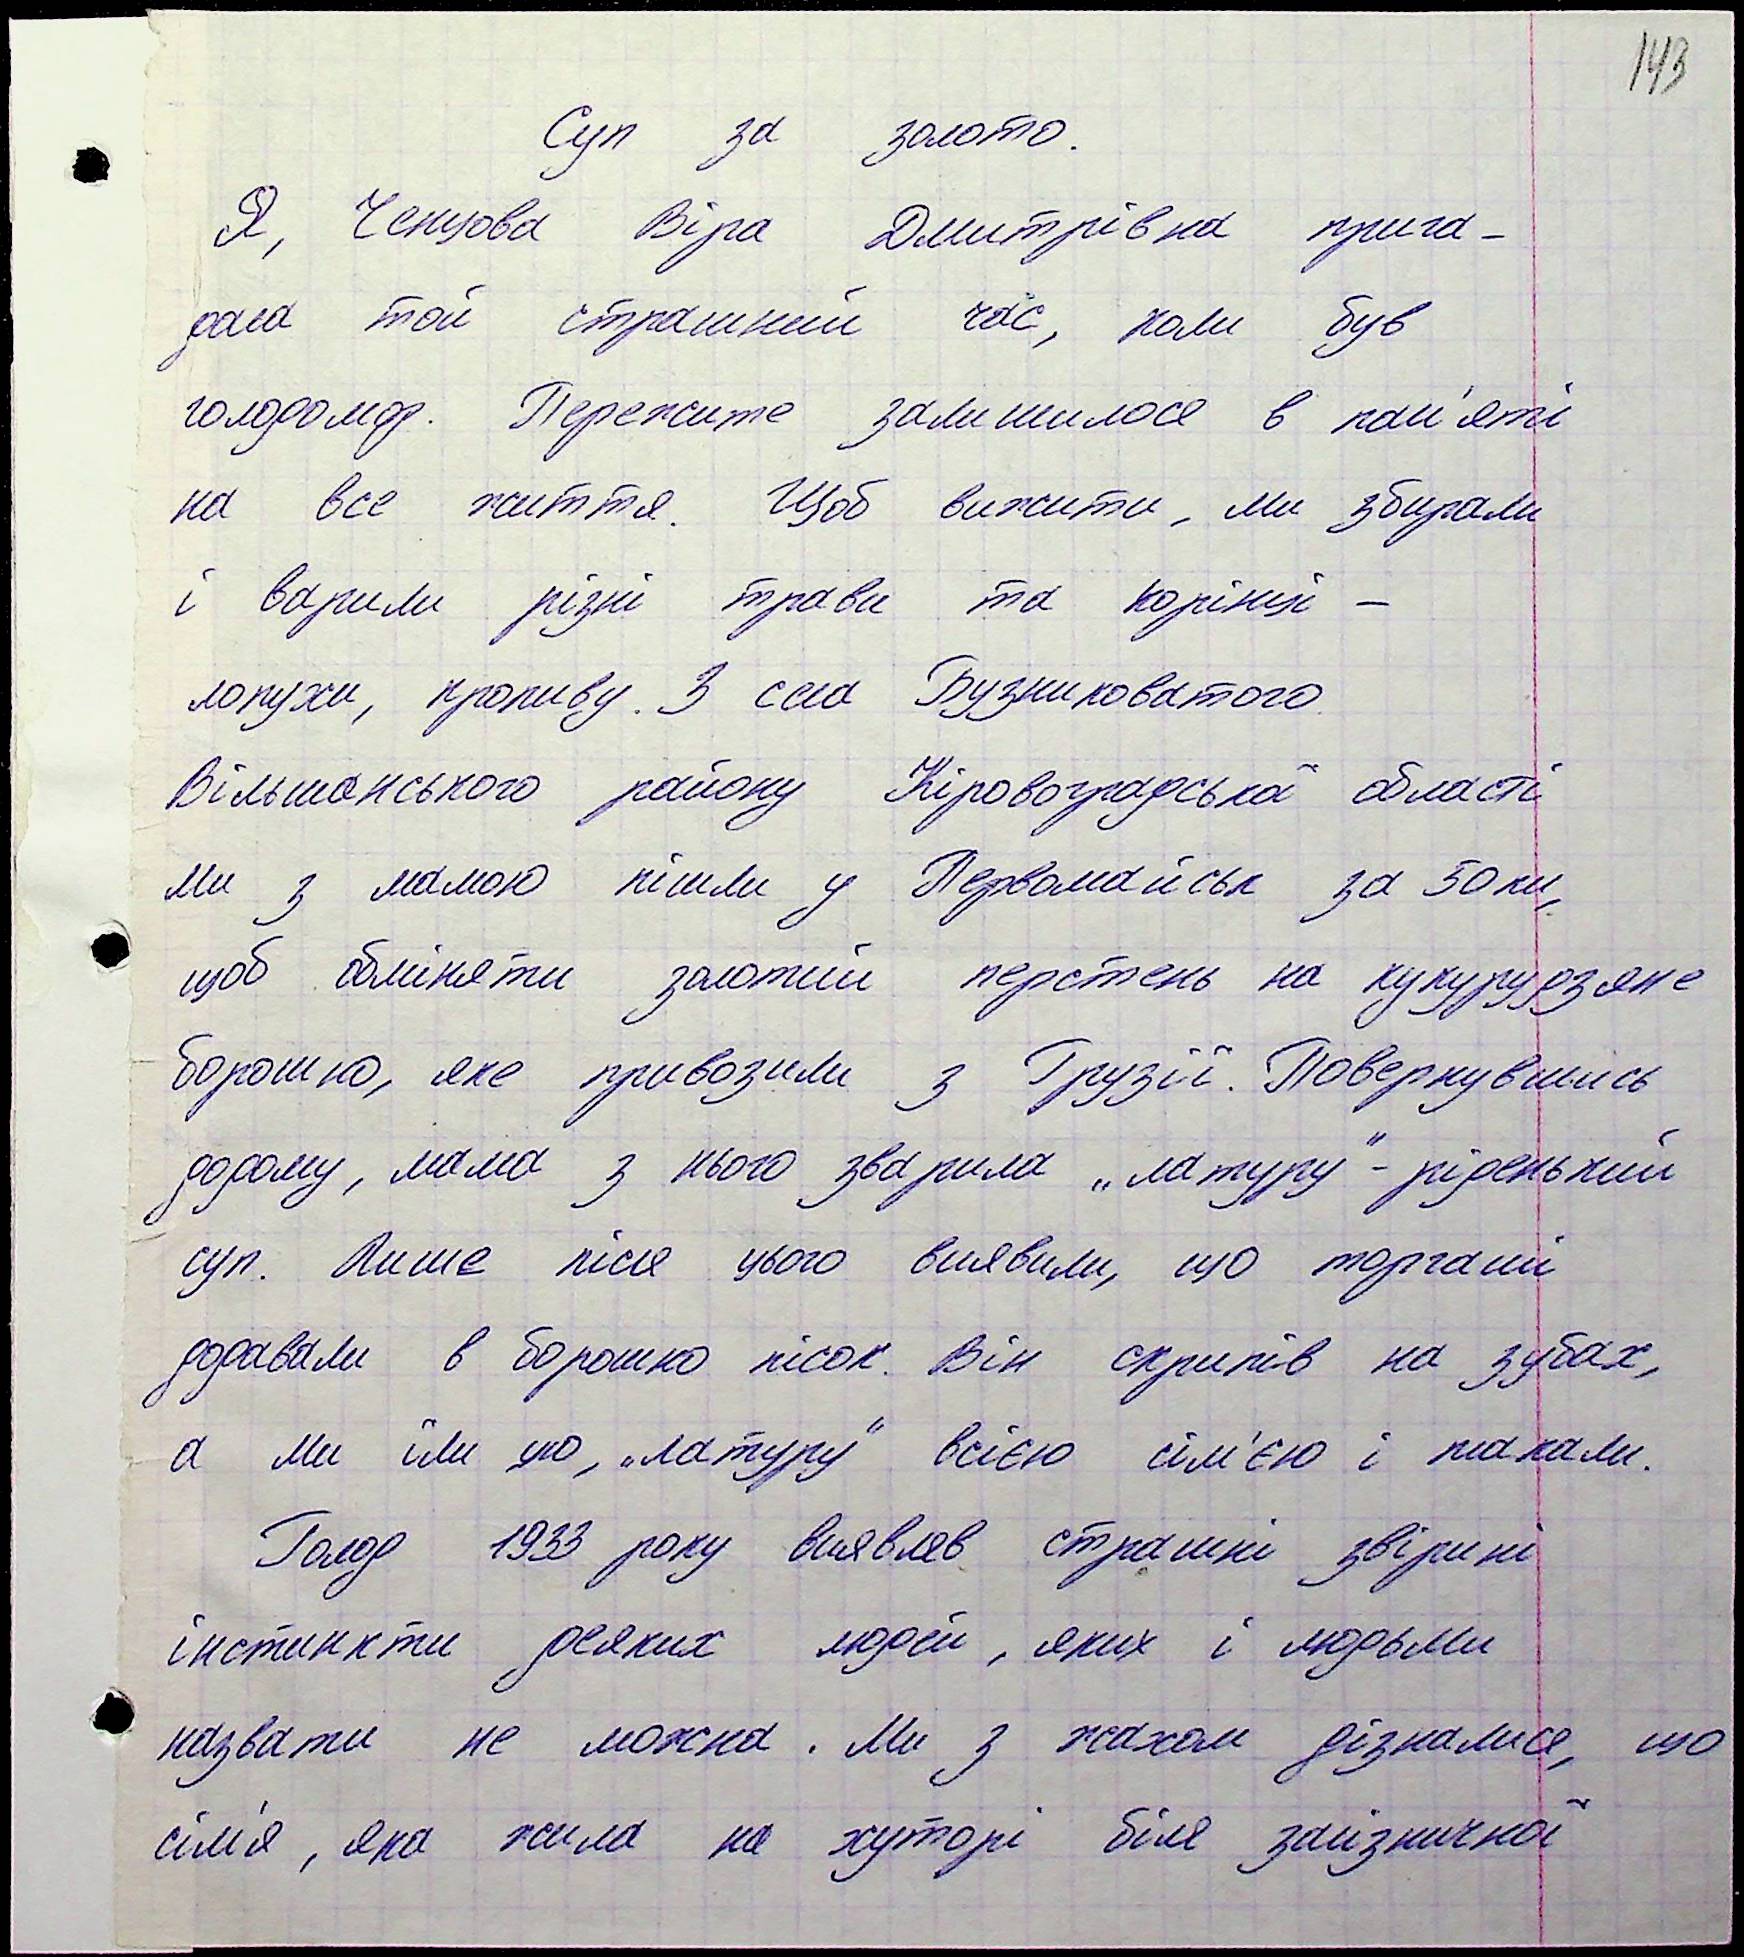 143
Суп за золото.
Я, Ченцова Віра Дмитрівна прига-
дала той страшний час, коли був
голодомор. Пережите залишилося в пам'яті
на все життя. Щоб вижити, ми збирали
і варили різні трави та коріння -
лопухи, кропиву. З села Бузниковатого
Вільшанського району Кіровоградської області
ми з мамою пішли у Первомайськ за 50 км,
щоб обміняти золотий перстень на кукурудзяне
борошно, яке привозили з Грузії. Повернувшись
додому, мама з нього зварила „латуру" - ріденький
суп. Лише після цього виявили, що торгаші
додавали в борошно пісок. Він скрипів на зубах,
а ми їли цю, „латуру" всією сім'єю і плакали.
Голод 1933 року виявляв страшні звірині
інстинкти деяких людей, яких і людьми
назвати не можна. Ми з жахом дізналися, що
сім'я, яка жила на хуторі біля залізничної